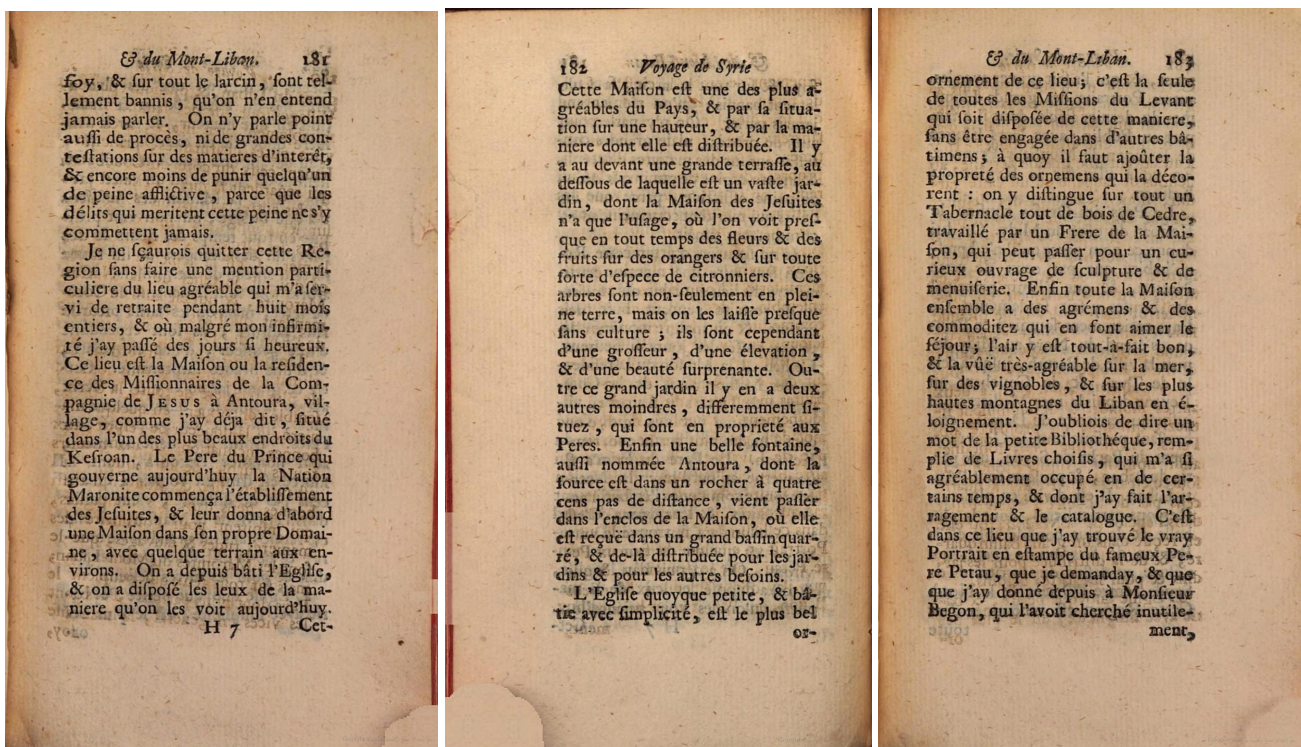 & du Mont-Liban. 181
foy, & ſur tout le larcin, ſont tel-
lement bannis, qu'on n'en entend
jamais parler. On n'y parle point
auſſi de procès, ni de grandes con-
teſtations ſur des matieres d'interêt,
& encore moins de punir quelqu'un
de peine afflictive, parce que les
délits qui meritent cette peine ne s'y
commettent jamais.
Je ne ſçaurois quitter cette Re-
gion ſans faire une mention parti-
culiere du lieu agréable qui m'a ſer-
vi de retraite pendant huit mois
entiers, & où malgré mon infirmi-
té j'ay paſſé des jours ſi heureux.
Ce lieu eſt la Maiſon ou la reſiden-
ce des Miſſionnaires de la Com-
pagnie de JESUS à Antoura, vil-
lage, comme j'ay déja dit, ſitué
dans l'un des plus beaux endroits du
Keſroan. Le Pere du Prince qui
gouverne aujourd'huy la Nation
Maronite commença l'établiſſement
des Jeſuites, & leur donna d'abord
une Maiſon dans ſon propre Domai-
ne, avec quelque terrain aux en-
virons. On a depuis bâti l'Egliſe,
& on a diſpoſé les leux de la ma-
niere qu'on les voit aujourd'huy.
H 7 Cet-
182 Voyage de Syrie
Cette Maiſon eſt une des plus a-
gréables du Pays, & par ſa ſitua-
tion ſur une hauteur, & par la ma-
niere dont elle eſt diſtribuée. Il y
a au devant une grande terraſſe, au
deſſous de laquelle eſt un vaſte jar-
din, dont la Maiſon des Jeſuites
n'a que l'uſage, où l'on voit preſ-
que en tout temps des fleurs & des
fruits ſur des orangers & ſur toute
ſorte d'eſpece de citronniers. Ces
arbres ſont non-ſeulement en plei-
ne terre, mais on les laiſſe preſque
ſans culture; ils ſont cependant
d'une groſſeur, d'une élevation,
& d'une beauté ſurprenante. Ou-
tre ce grand jardin il y en a deux
autres moindres, differemment ſi-
tuez, qui ſont en proprieté aux
Peres. Enfin une belle fontaine,
auſſi nommée Antoura, dont la
ſource eſt dans un rocher à quatre
cens pas de diſtance, vient paſſer
dans l'enclos de la Maiſon, où elle
eſt reçuë dans un grand baſſin quar-
ré, & de-là diſtribuée pour les jar-
dins & pour les autres beſoins.
L'Egliſe quoyque petite, & bâ-
tie avec ſimplicité, eſt le plus bel
or-
& du Mont-Liban. 183
ornement de ce lieu; c'eſt la ſeule
de toutes les Miſſions du Levant
qui ſoit diſpoſée de cette maniere,
ſans être engagée dans d'autres bâ-
timens; à quoy il faut ajoûter la
propreté des ornemens qui la déco-
rent: on y diſtingue ſur tout un
Tabernacle tout de bois de Cedre,
travaillé par un Frere de la Mai-
ſon, qui peut paſſer pour un cu-
rieux ouvrage de ſculpture & de
menuiſerie. Enfin toute la Maiſon
enſemble a des agrémens & des
commoditez qui en font aimer le
ſéjour; l'air y eſt tout-a-fait bon,
& la vûë très-agréable ſur la mer,
ſur des vignobles, & ſur les plus
hautes montagnes du Liban en é-
loignement. J'oubliois de dire un
mot de la petite Bibliothéque, rem-
plie de Livres choiſis, qui m'a ſi
agréablement occupé en de cer-
tains temps, & dont j'ay fait l'ar-
ragement & le catalogue. C'eſt
dans ce lieu que j'ay trouvé le vray
Portrait en eſtampe du fameux Pe-
re Petau, que je demanday, & que
que j'ay donné depuis à Monſieur
Begon, qui l'avoit cherché inutile-
ment,